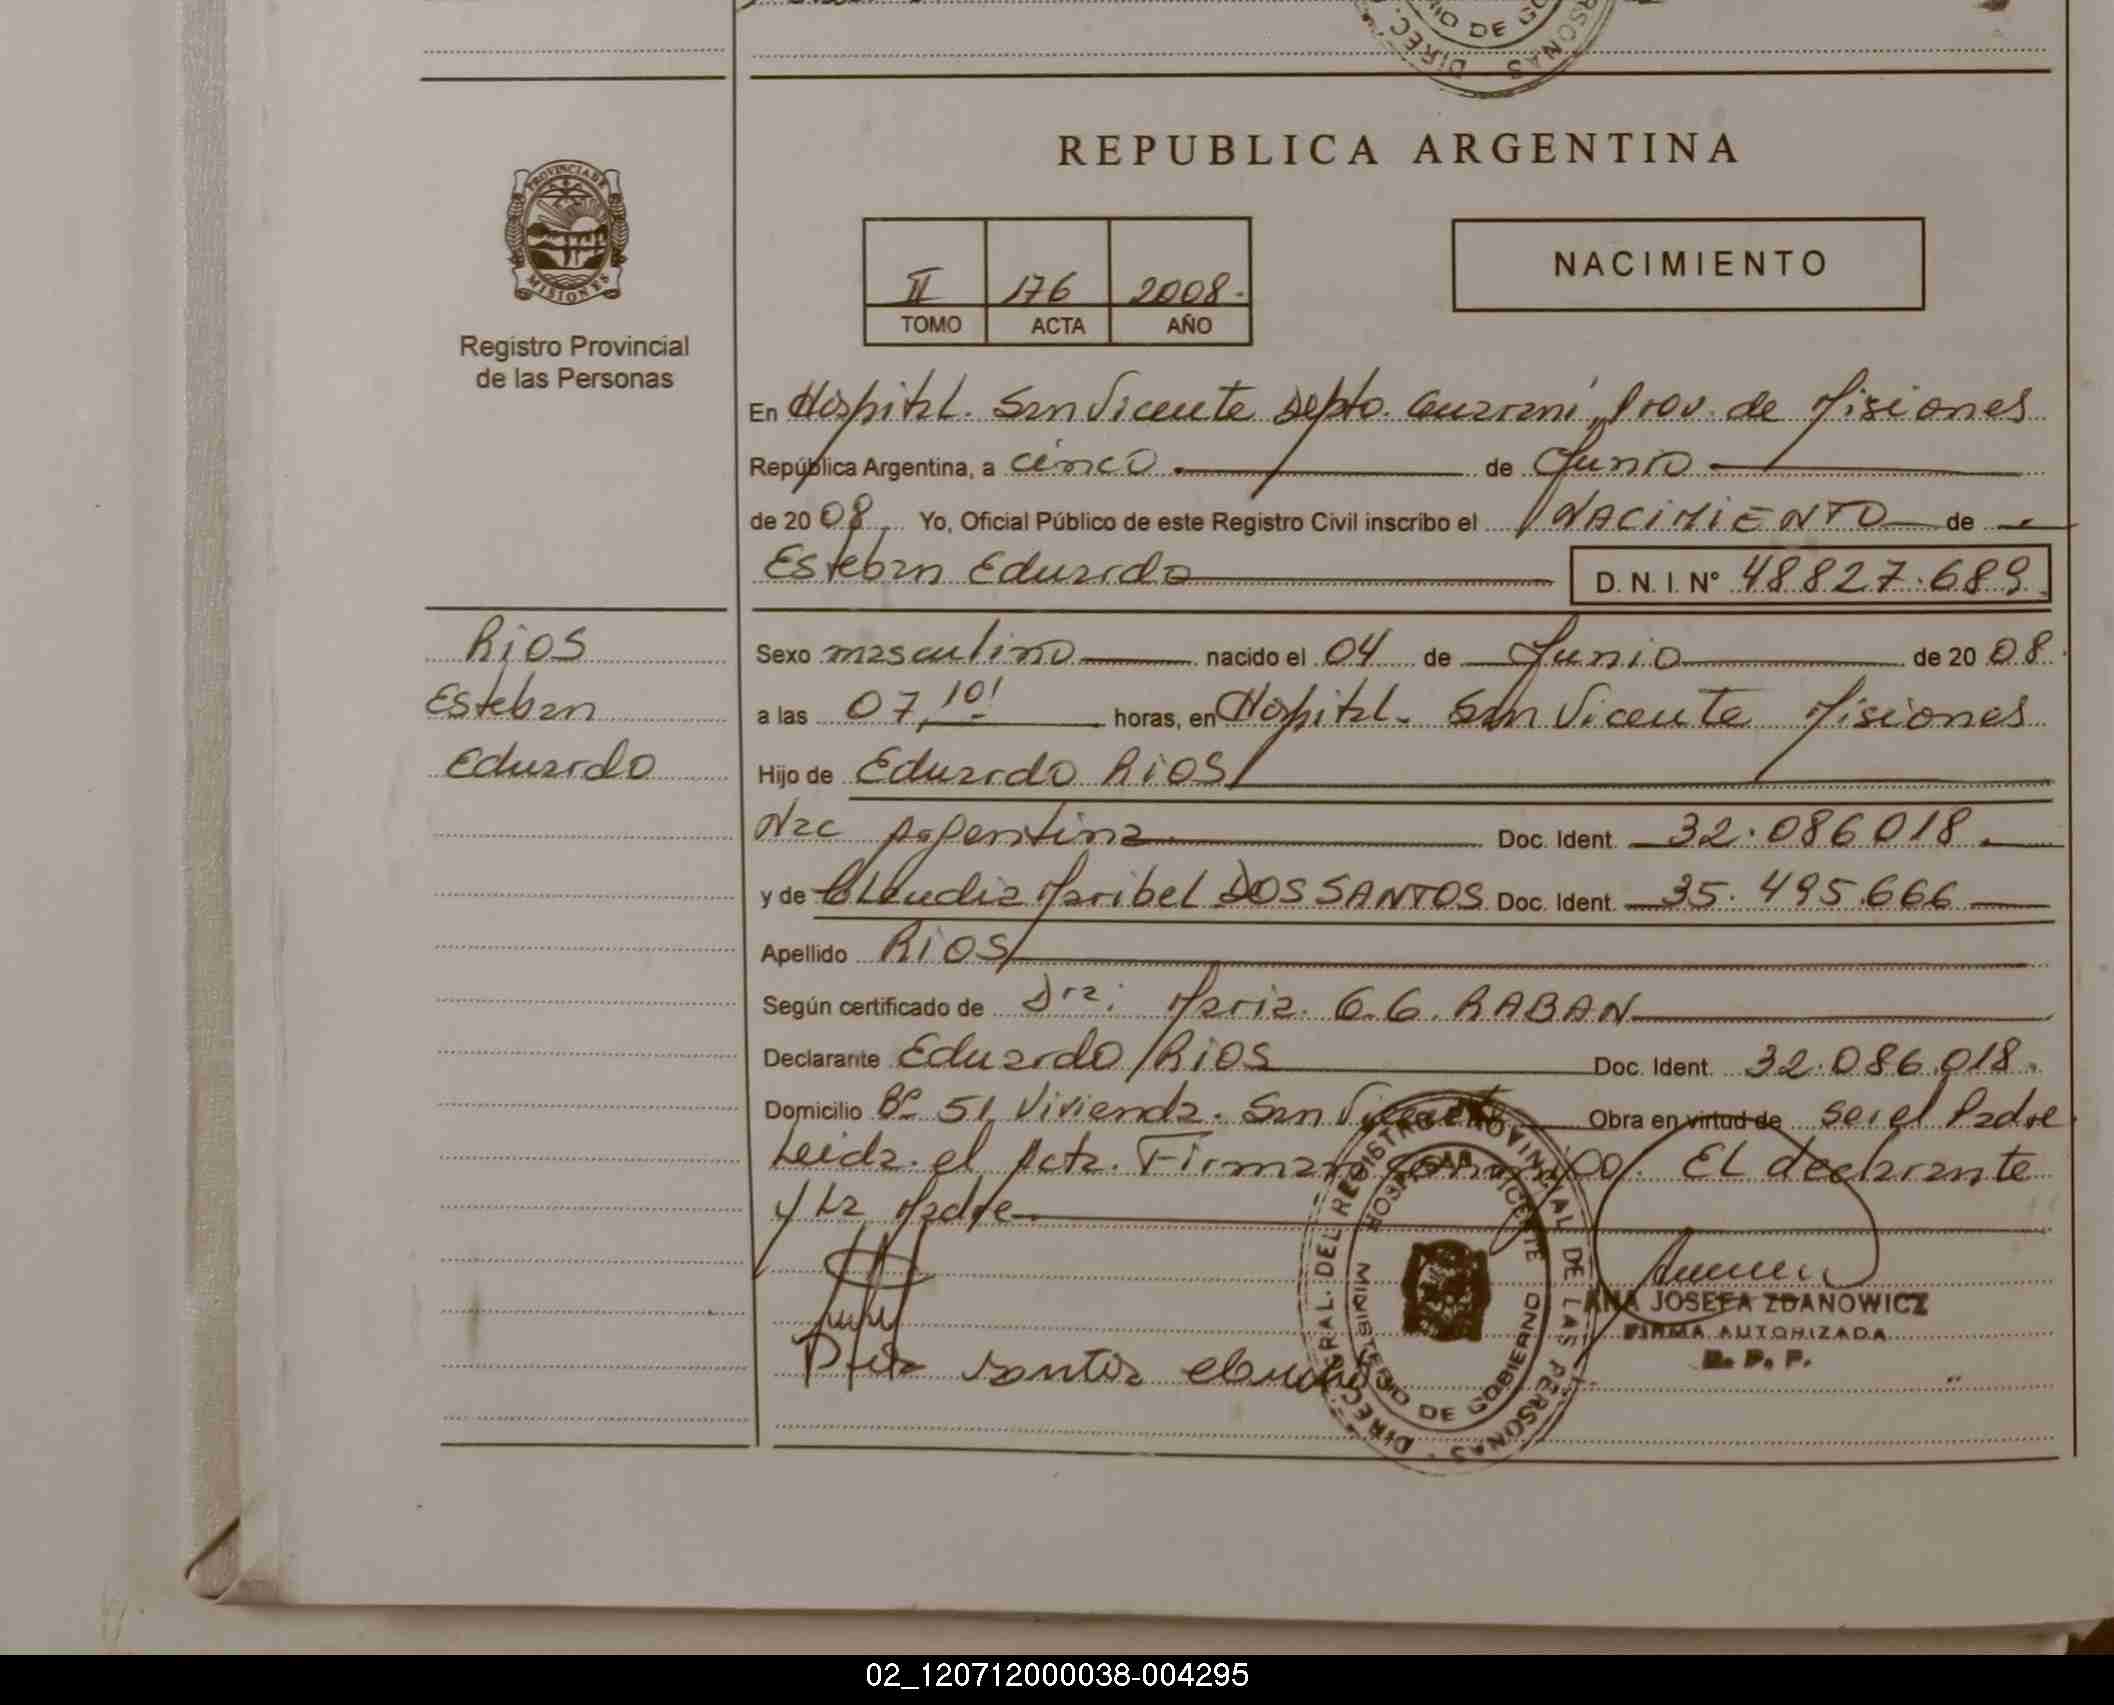 REPUBLICA ARGENTINA
PROVINCIA DE MISIONES
Registro Provincial
de las Personas
II 176 2008.
TOMO ACTA AÑO
NACIMIENTO
En Hospital. San Vicente Depto. Guaraní, Prov. de Misiones
República Argentina, a cinco de Junio
de 2008 Yo, Oficial Público de este Registro Civil inscribo el NACIMIENTO de
Esteban Eduardo D. N. I. Nº 48827.689
RIOS
Esteban
Eduardo
Sexo masculino nacido el 04 de Junio de 2008.
a las 07,10' horas, en Hospital. San Vicente Misiones
Hijo de Eduardo RIOS
Nac Argentina Doc. Ident. 32.086018.
y de Claudia Maribel DOS SANTOS Doc. Ident. 35.495.666
Apellido RIOS
Según certificado de Dra: Maria. G.G. RABAN
Declarante Eduardo RIOS Doc. Ident. 32.086.018.
Domicilio Bº 51 Vivienda. San Vicente Obra en virtud de ser el Padre
Leida el Acta. Firman El declarante
y La Madre
DIREC. GRAL. DEL REGISTRO PROVINCIAL DE LAS PERSONAS
HOSPITAL SAN VICENTE
MINISTERIO DE GOBIERNO
ANA JOSEFA ZDANOWICZ
FIRMA AUTORIZADA
R. P. P.
santos
02_120712000038-004295